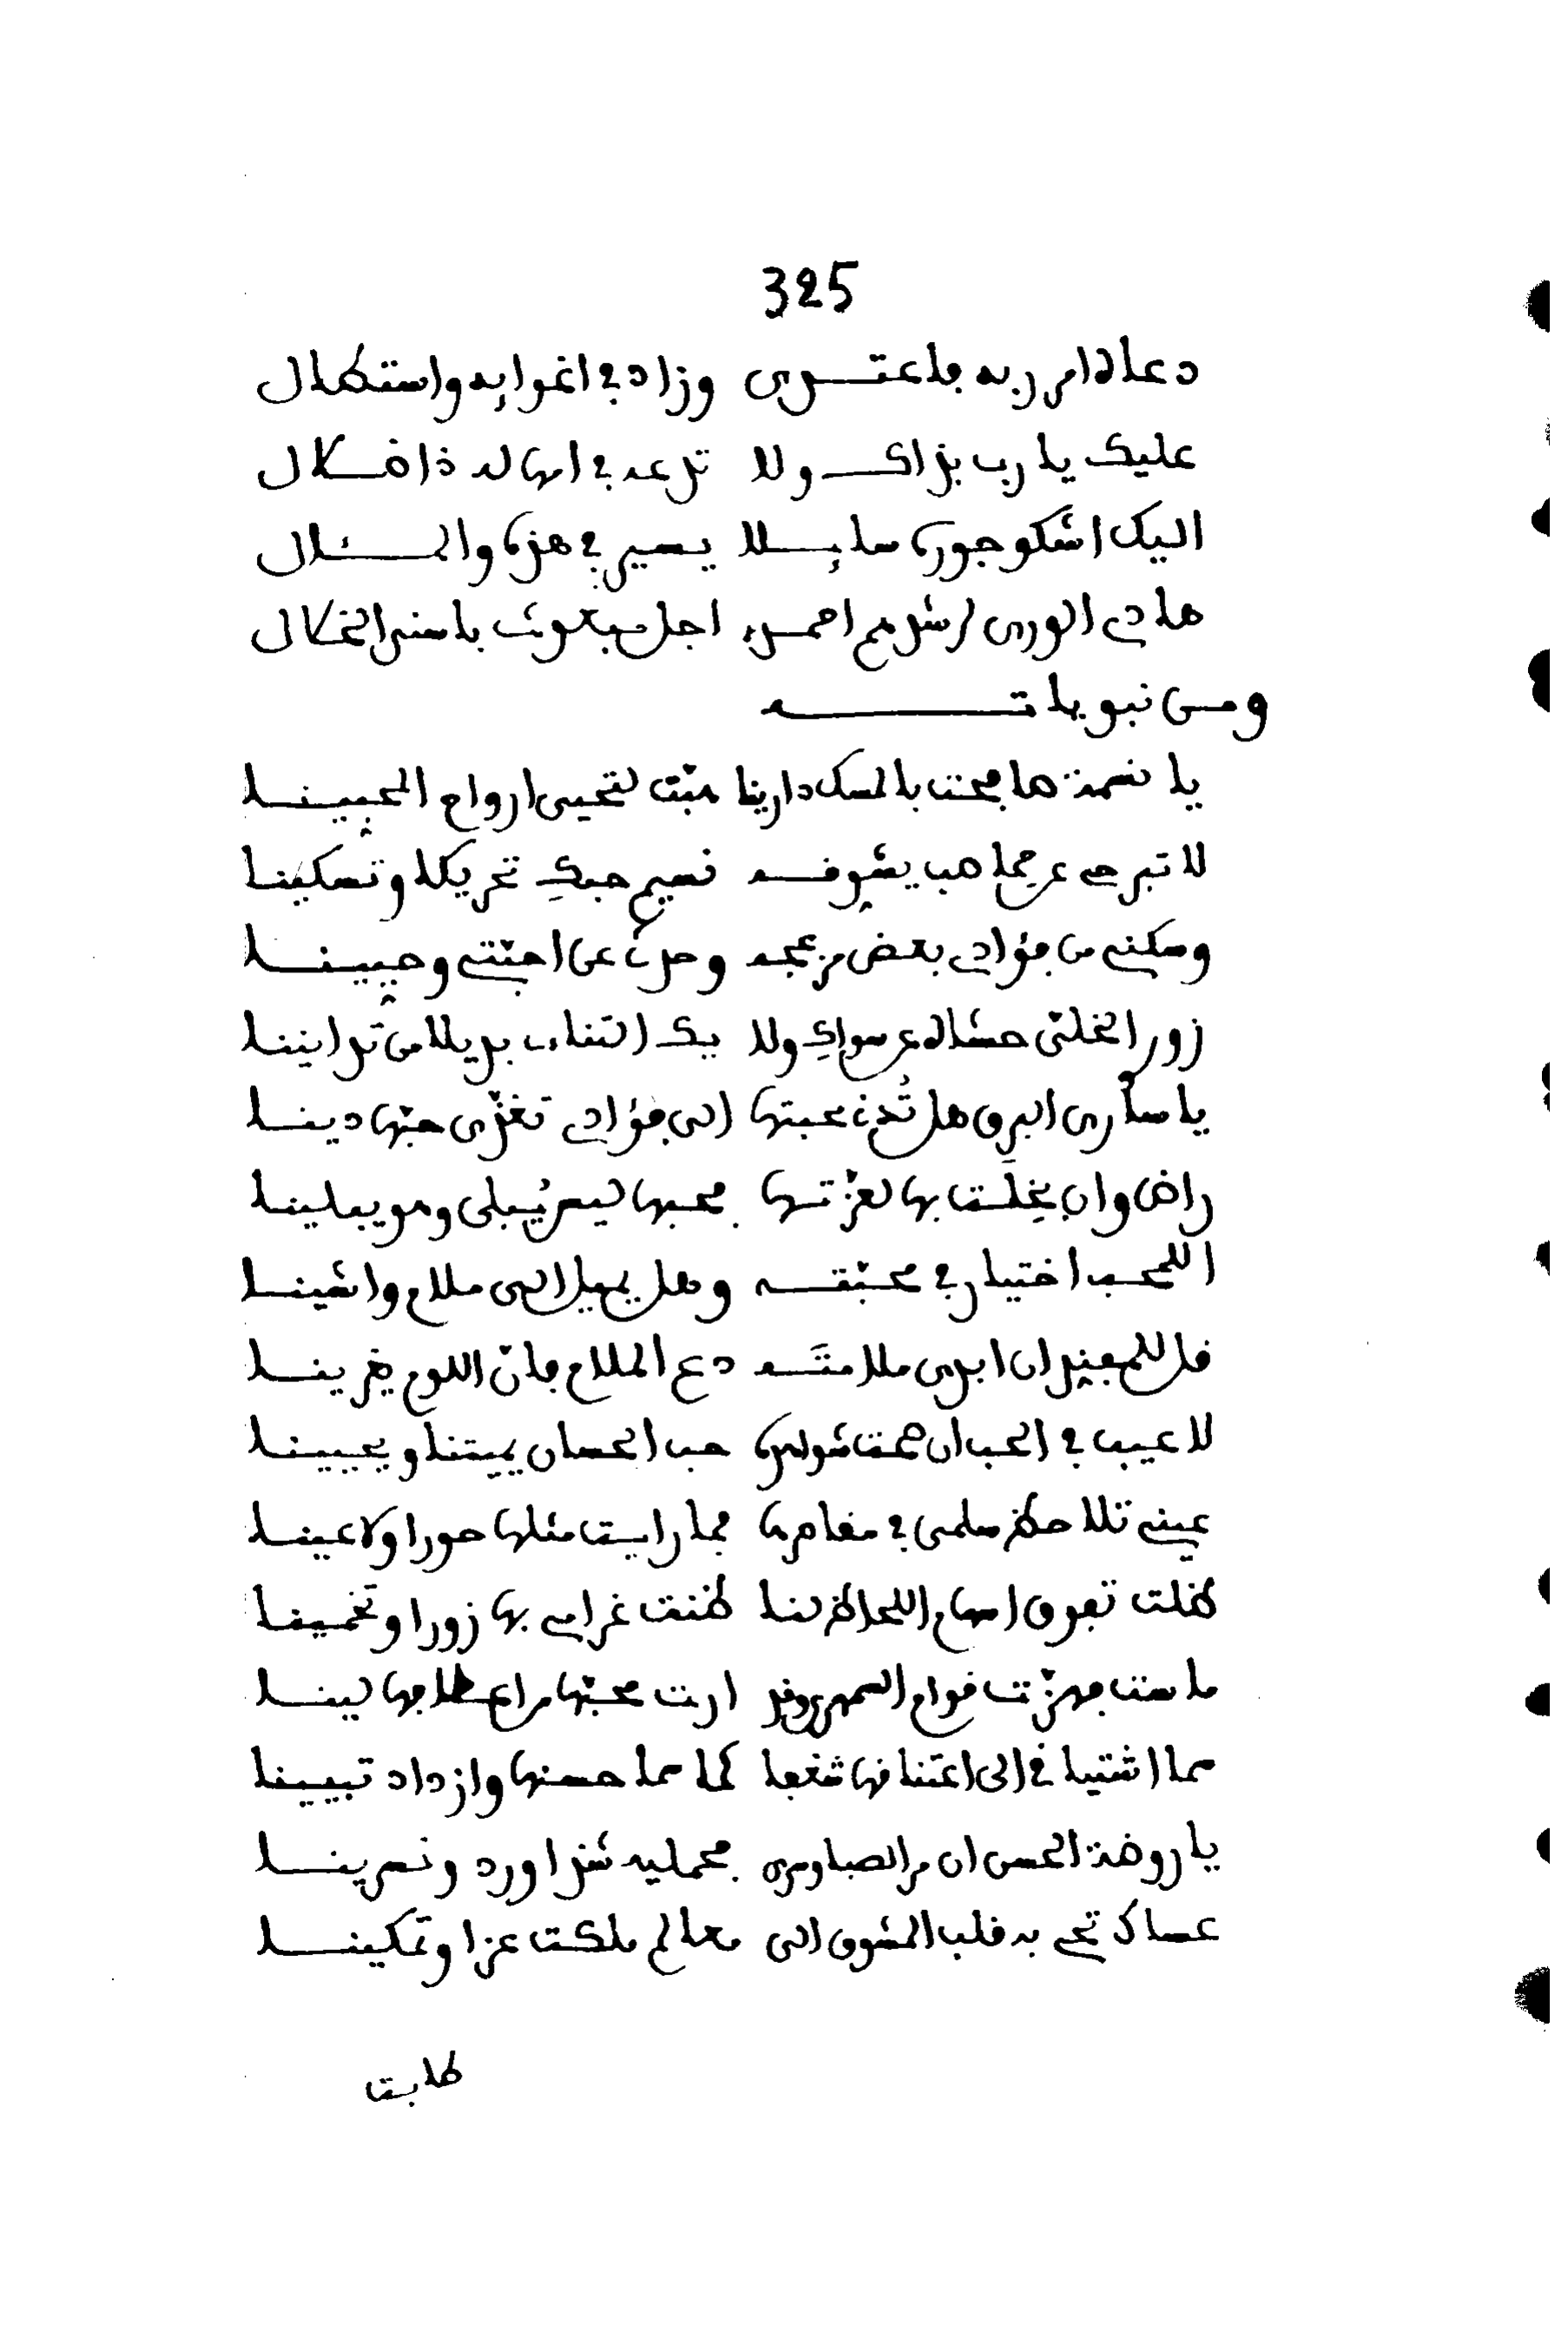 325
دعاه امر ربه فاعتدى وزاد في اغوايه واستطال
عليك يا رب بذاك ولا تدعه في امهاله ذا ضلال
اليك اشكو جوره سايلا يسير في هذه والمثال
هادي الورى لرشدهم احمد اجل مبعوث باسنى الخصال
ومن نبوياته
يا نسمة هافحت بالمسك دارينا هبّت لتحيي ارواح المحبينا
لا تبرحي عن حما صب يشوقه نسيم حبكِ تحريكا وتسكينا
وسكني من فؤادي بعض مزعجه وحدّث عن احبّتي وحيينا
زور التخلّي حشاه عن سواكِ ولا يك التناءي بديلا من تدانينا
يا ساري البرق هل تُدني محبتها الى فؤادي تغذّى حبّها دينا
راض وان بخلت بها لعزّتها محبها ليس يُبلى وهو يبلينا
اللمحب اختيار في محبّته وهل يميل الى ملام واشينا
قل للمعنف ان ابدى ملامتَه دع الملام فانّ اللوم يغرينا
لا عيب في الحب ان همت شواهده حب الحسان يميتنا ويحيينا
عيني تلاحظ سلمى في مقاصرها فما رايت مثلها حورا ولا عينا
ظلت تفوق اسهام اللحاظ لنا ظنت غرامي بها زورا وتخمينا
ماست فهزّت قوام السمهري وقد ارت محبّها من اعطافها لينا
سما اشتياقي الى اعتناقها شغفا كما سما حسنها وازداد تبيينا
يا روضة الحسن ان مر الصبا وسرى فحمليه شذا ورد ونسرينا
عساك تحي به قلب المشوق الى معالم ملكت عزا وتمكينا
طابت